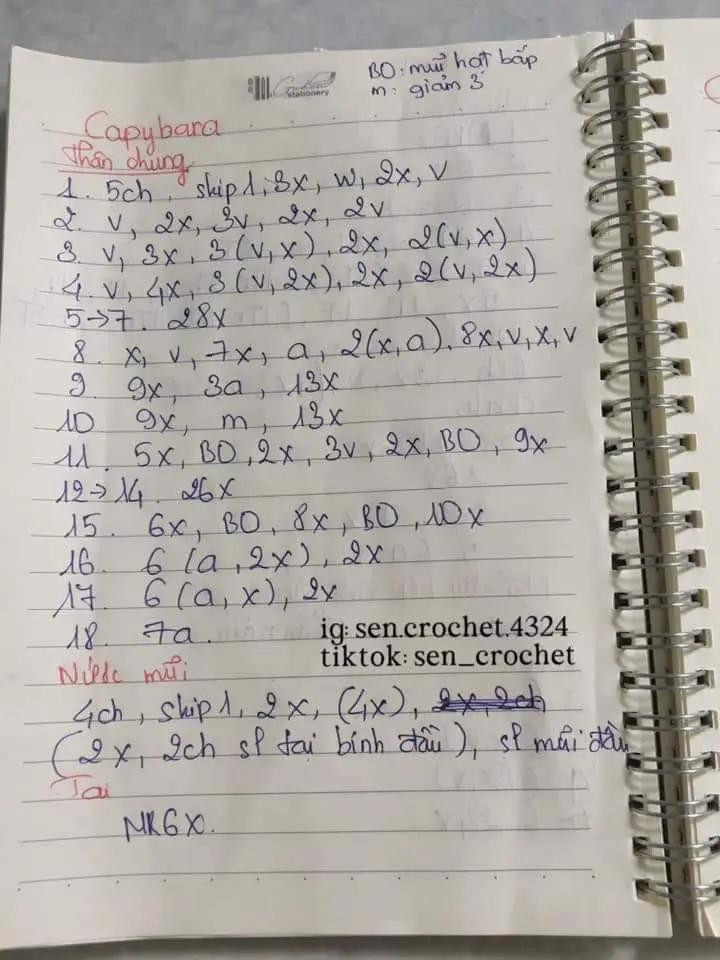 stationery
BO: mũi hạt bắp
m: giảm 3
Capybara
Thân chung
1. 5ch, skip 1, 3x, w, 2x, v
2. v, 2x, 3v, 2x, 2v
3. v, 3x, 3(v,x), 2x, 2(v,x)
4. v, 4x, 3(v,2x), 2x, 2(v,2x)
5→7. 28x
8. x, v, 7x, a, 2(x,a), 8x, v, x, v
9. 9x, 3a, 13x
10 9x, m, 13x
11. 5x, BO, 2x, 3v, 2x, BO, 9x
12→14. 26x
15. 6x, BO, 8x, BO, 10x
16. 6 (a, 2x), 2x
17. 6 (a, x), 2x
18. 7a.
ig: sen.crochet.4324
tiktok: sen_crochet
mũi
4ch, skip 1, 2x, (4x), 2x, 2ch
(2x, 2ch sl tại bính đầu), sl mũi đầu
Tai
MR6X.